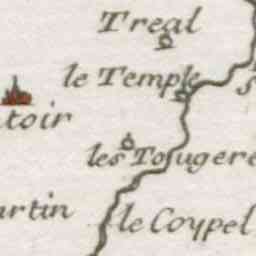 Treal
le Temple
S
toir
les Tougere
artin
le Coypel